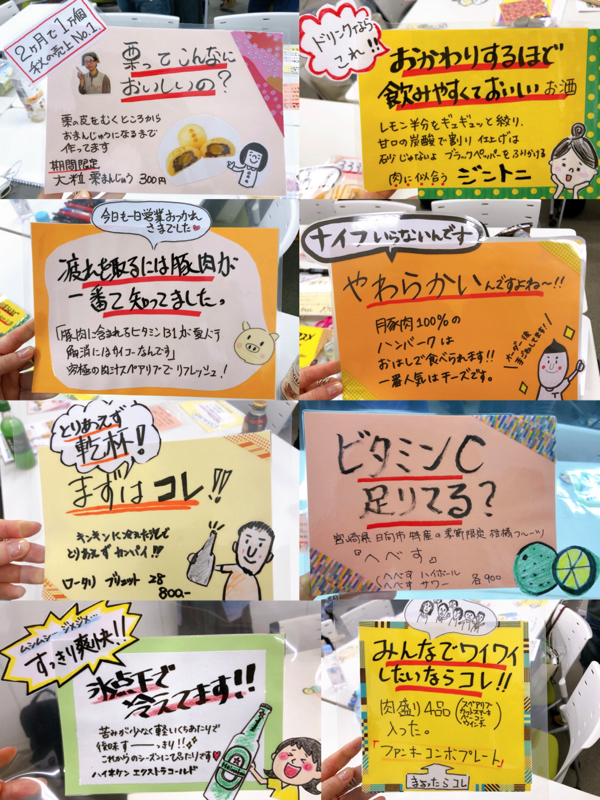 2ヶ月で1万個
秋の売上No.1
栗ってこんなに
おいしいの?
栗の皮をむくところから
おまんじゅうになるまで
作ってます
期間限定
大粒栗まんじゅう 300円
ドリンクなら
これ!!
おかわりするほど
飲みやすくておいしいお酒
レモン半分をギュギュッと絞り、
甘口の炭酸で割り仕上げは
石りじゃないよ ブラックペッパーをふりかける
肉に似合う ジントニ
今日も一日営業おつかれ
さまでした
疲れを取るには豚肉が
一番て知ってました。
「豚肉に含まれるビタミンB1が夏バテ
解消にはサイコーなんです」
究極の肉汁スペアリブでリフレッシュ!
ナイフいらないんです
やわらかいんですよね〜!!
月豚肉100%の
ハンバーグは
おはしで食べられます!!
一番人気はチーズです。
オーダー後
手ごねしてます!
とりあえず
乾杯!
まずはコレ!!
キンキンに冷えた泡で
とりあえずカンパイ!!
ロータリ ブリュット 28
800.-
ビタミンC
足りてる?
宮崎県日向市特産の季節限定柑橘フルーツ
『へべす』
へべすハイボール
へべすサワー 各900
ムシムシー ジメジメ…
すっきり爽快!!
氷点下で
冷えてます!!
苦みが少なく軽いくちあたりで
後味すーーっきり!!
これからのシーズンにぴったりです
ハイネケン エクストラコールド
みんなでワイワイ
したいならコレ!!
肉盛り4品
スペアリブ
カットステーキ
ベーコン
ウインナー
入った。
「ファンキーコンボプレート」
まよったらコレ